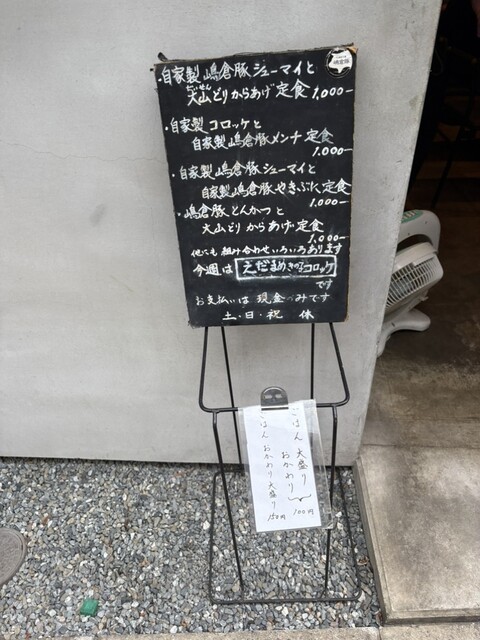 ・自家製 嶋倉豚シューマイと
だいせん
大山どりからあげ定食 1,000-
・自家製 コロッケと
自家製嶋倉豚メンチ定食
1,000-
・自家製嶋倉豚シューマイと
自家製嶋倉豚やきぶた定食
1,000-
・嶋倉豚とんかつと
大山どりからあげ定食
1,000-
他にも組み合わせいろいろあります
今週は えだまめきのこコロッケ
です
お支払いは 現金のみです
土・日・祝 休
ごはん 大盛り
おかわり 100円
ごはん おかわり大盛り 150円